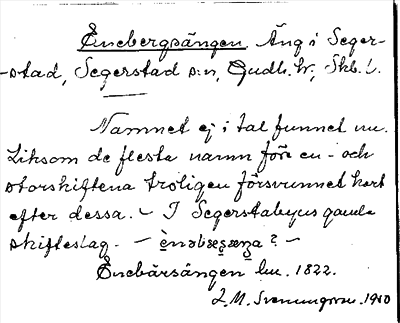 Enebergsängen. Äng i Seger-
-stad, Segerstad s:n, Gudh. hr, Skb. l.
Namnet ej i tal funnet nu.
Liksom de flesta namn före en- och
storskiftena troligen försvunnet kort
efter dessa. – I Segerstabyns gamla
skifteslag. – – ? –
Enebärsängen hm. 1822.
L. M. Svenungsson. 1910